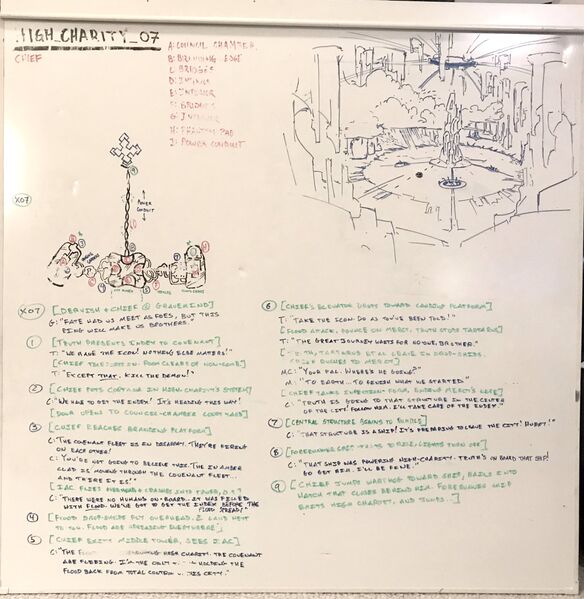 HIGH_CHARITY_07
CHIEF
A: COUNCIL CHAMBER
B: BRANDING EDGE
C: BRIDGES
E: INTERIOR
F: BRIDGES
G: INTERIOR
H: PHANTOM PAD
J: POWER CONDUIT
X07
POWER
CONDUIT
X07 [DERVISH & CHIEF @ GRAVEMIND]
G: "FATE HAD US MEET AS FOES, BUT THIS
RING WILL MAKE US BROTHERS."
1 [TRUTH PRESENTS INDEX TO COVENANT]
T: "WE HAVE THE ICON! NOTHING ELSE MATTERS!"
T: "EXCEPT THAT. KILL THE DEMON!"
2 [CHIEF PUTS CORTANA IN HIGH-CHARITY'S SYSTEM]
C: "WE HAD TO GET THE INDEX! IT'S HEADING THIS WAY!
[DOOR OPENS TO COUNCIL-CHAMBER COURTYARD]
3 [CHIEF REACHES BRANDING PLATFORM]
C: THE COVENANT FLEET IS IN DISARRAY. THEY'RE FIRING
ON EACH OTHER!
C: YOU'RE NOT GOING TO BELIEVE THIS. THE IN AMBER
CLAD IS MOVING THROUGH THE COVENANT FLEET...
AND THERE IT IS!"
[IAC FLIES OVERHEAD & CRASHES INTO TOWER
C: "THERE WERE NO HUMANS ON BOARD. IT WAS FILLED
WITH FLOOD. WE'VE GOT TO GET THE INDEX BEFORE THE
FLOOD SPREADS!"
4 [FLOOD DROP-SHIPS FLY OVERHEAD. 2 LAND NEXT
TO YOU. FLOOD ARE SPREADING EVERYWHERE]
5 [CHIEF EXITS MIDDLE TOWER, SEES IAC]
C: "THE HIGH CHARITY. THE COVENANT
ARE FLEEING. I'M THE ONLY HOLDING THE
FLOOD BACK FROM TOTAL CONTROL CITY."
6 [CHIEF'S ELEVATOR DROPS TOWARD LANDING PLATFORM]
T: "TAKE THE ICON. DO AS YOU'VE BEEN TOLD!"
[FLOOD ATTACK, POUNCE ON MERCY. TRUTH STOPS TARTARUS]
T: "THE GREAT JOURNEY WAITS FOR NO ONE, BROTHER."
TARTARUS ET AL LEAVE IN DROP-SHIPS.
CHIEF RUSHES TO MERCY]
MC: "YOUR PAL. WHERE'S HE GOING?"
M: "TO EARTH... TO FINISH WHAT WE STARTED."
[CHIEF TAKES INFECTION FORM, ENDING MERCY'S LIFE]
C: "TRUTH IS GOING TO THAT STRUCTURE IN THE CENTER
OF THE CITY! FOLLOW HIM. I'LL TAKE CARE OF THE INDEX."
7 [CENTRAL STRUCTURE BEGINS TO
C: "THAT STRUCTURE IS A SHIP! IT'S PREPARING TO LEAVE THE CITY! HURRY!"
8 [FORERUNNER SHIP TO RISE, LIGHTS TURN OFF]
C: "THAT SHIP WAS POWERING HIGH-CHARITY. TRUTH'S ON BOARD THAT SHIP!
GO GET HIM. I'LL BE FINE."
9 [CHIEF JUMPS TOWARD SHIP, INTO
HATCH THAT CLOSES BEHIND HIM. FORERUNNER SHIP
EXITS HIGH CHARITY, AND JUMPS...]